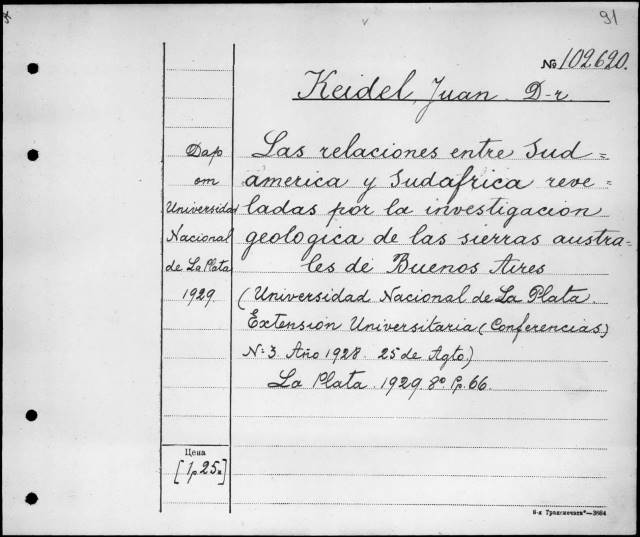 91
№ 102620.
Keidel, Juan. D-r.
Даръ
от
Universidad
Nacional
de La Plata
1929.
Las relaciones entre Sud=
america y Sudafrica reve=
ladas por la investigacion
geologica de las sierras austra=
les de Buenos Aires
(Universidad Nacional de La Plata.
Extension Universitaria (Conferencias)
N:3. Año 1928. 25 de Agto.)
La Plata. 1929. 8º. Pp. 66.
Цена
[1р. 25к]